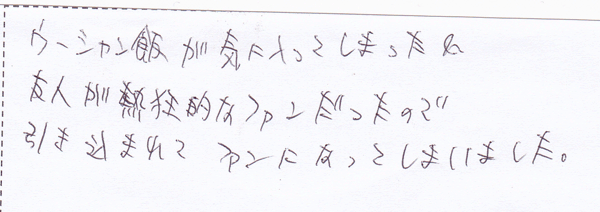 ウーシャン飯が気に入ってしまったね
友人が熱狂的なファンだったので
引き込まれて ファンになってしまいました。